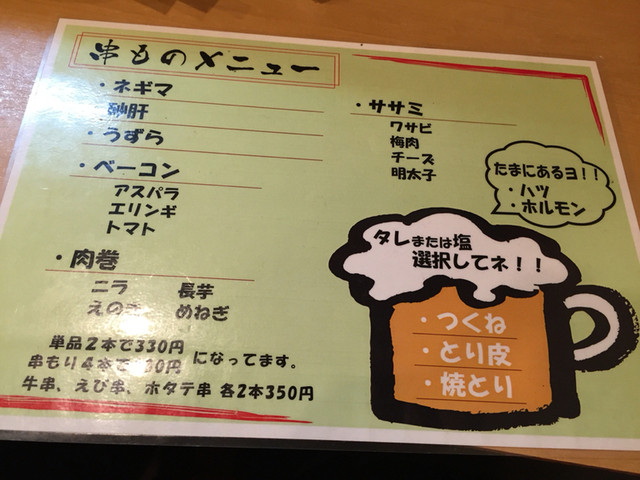 串ものメニュー
・ネギマ
砂肝
・うずら
・ベーコン
アスパラ
エリンギ
トマト
・肉巻
ニラ 長芋
えのき めねぎ
単品2本で330円
串もり4本で 30円 になってます。
牛串、えび串、ホタテ串 各2本350円
・ササミ
ワサビ
梅肉
チーズ
明太子
たまにあるヨ!!
・ハツ
・ホルモン
タレまたは塩
選択してネ!!
・つくね
・とり皮
・焼とり